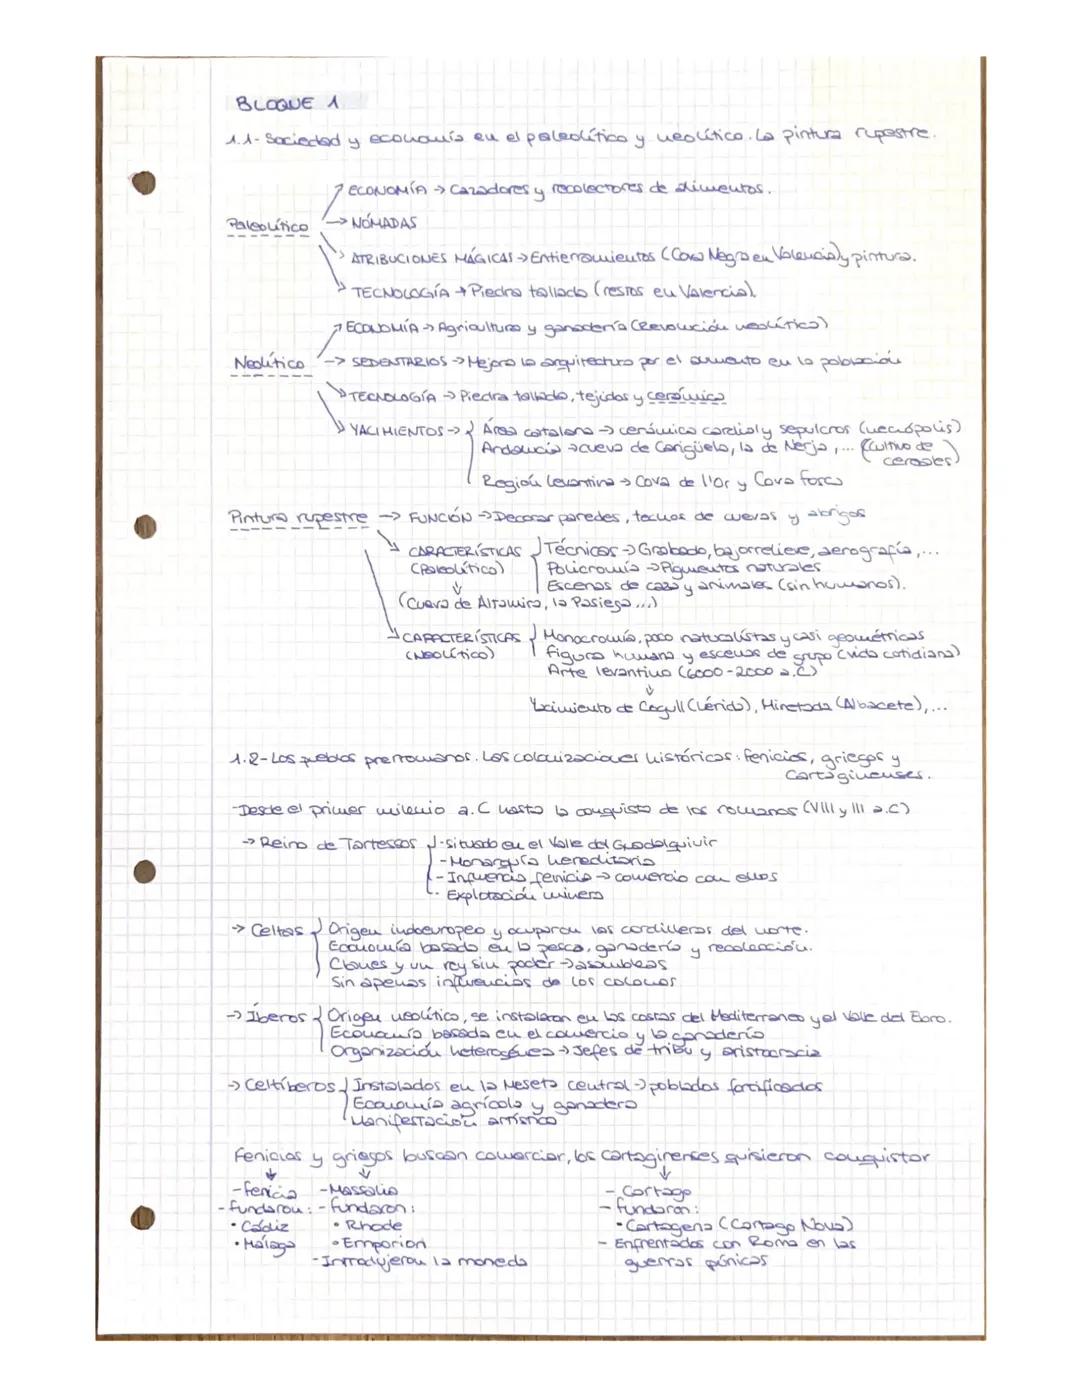 BLOQUE 1
1.1- Sociedad y economía en el paleolítico y neolítico. La pintura rupestre.
ECONOMÍA → Cazadores y recolectores de alimentos.
Paleolítico → NÓMADAS
ATRIBUCIONES MÁGICAS → Entierramientos (Cova Negra en Valencia) y pintura.
TECNOLOGÍA → Piedra tallada (restos en Valencia).
ECONOMÍA → Agricultura y ganadería (Revolución neolítica)
Neolítico → SEDENTARIOS → Mejora la arquitectura por el aumento en la población
TECNOLOGÍA → Piedra tallada, tejidos y cerámica
YACIMIENTOS → { Área catalana → cerámica cardial y sepulcros (necrópolis)
Andalucía → cueva de Carigüela, la de Nerja, ... (Cultivo de cereales)
Región levantina → Cova de l'Or y Cova Fosca
Pintura rupestre → FUNCIÓN → Decorar paredes, techos de cuevas y abrigos
CARACTERÍSTICAS { Técnicas → Grabado, bajorrelieve, aerografía, ...
(Paleolítico) Policromía → Pigmentos naturales
↓ Escenas de caza y animales (sin humanos).
(Cueva de Altamira, la Pasiega ...)
CARACTERÍSTICAS { Monocromía, poco naturalistas y casi geométricas
(NEOLÍTICO) Figura humana y escenas de grupo (vida cotidiana)
Arte levantino (6000-2000 a.C)
↓
Yacimiento de Cogull (Lérida), Minetada (Albacete), ...
1.2- Los pueblos prerromanos. Las colonizaciones históricas: fenicios, griegos y
Cartaginenses.
-Desde el primer milenio a.C hasta la conquista de los romanos (VIII y III a.C)
→ Reino de Tartessos { -situado en el Valle del Guadalquivir
-Monarquía hereditaria
-Influencia fenicia → comercio con ellos
- Explotación minera
→ Celtas { Origen indoeuropeo y ocuparon las cordilleras del norte.
Economía basada en la pesca, ganadería y recolección.
Clanes y un rey sin poder → asambleas
Sin apenas influencias de los colonos
→ Íberos { Origen neolítico, se instalaron en las costas del Mediterraneo y el Valle del Ebro.
Economía basada en el comercio y la ganadería
Organización heterogénea → Jefes de tribu y aristocracia
→ Celtíberos { Instalados en la Meseta central → poblados fortificados
Economía agrícola y ganadera
Manifestación artística
Fenicios y griegos buscan comerciar, los Cartaginenses quisieron conquistar
↓ ↓ ↓
-Fenicia -Massalia - Cartago
-fundaron: -fundaron: - fundaron:
• Cádiz • Rhode • Cartagena (Cartago Nova)
• Málaga • Emporion - Enfrentados con Roma en las
-Introdujeron la moneda guerras púnicas